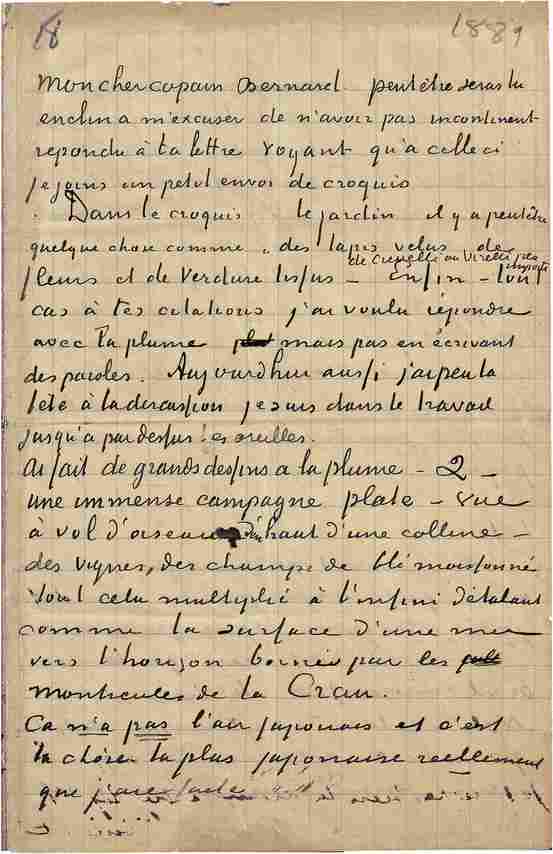 18 1889
Mon cher copain Bernard peut être seras tu
enclin a m'excuser de n'avoir pas incontinent
repondu à ta lettre voyant qu'à celle ci
je joins un petit envoi de croquis
. Dans le croquis le jardin il y a peut être
quelque chose comme . des tapis velus de
de Crivelli ou Virelli peu importe
fleurs et de verdure tissus – enfin – tout
cas à tes citations j'ai voulu répondre
avec la plume mais pas en écrivant
des paroles. Aujourdhui aussi j'ai peu la
tete à la discussion je suis dans le travail
jusqu'a par dessus les oreilles.
Ai fait de grands dessins a la plume – 2 –
une immense campagne plate – vue
à vol d'oiseau du haut d'une colline –
des vignes, des champs de blé moissonné
Tout cela multiplié à l'infini s'étalant
comme la surface d'une mer
vers l'horizon bornée par les
monticules de la Crau.
Ca n'a pas l'air japonais et c'est
la chose la plus japonaise reellement
que j'aie faite